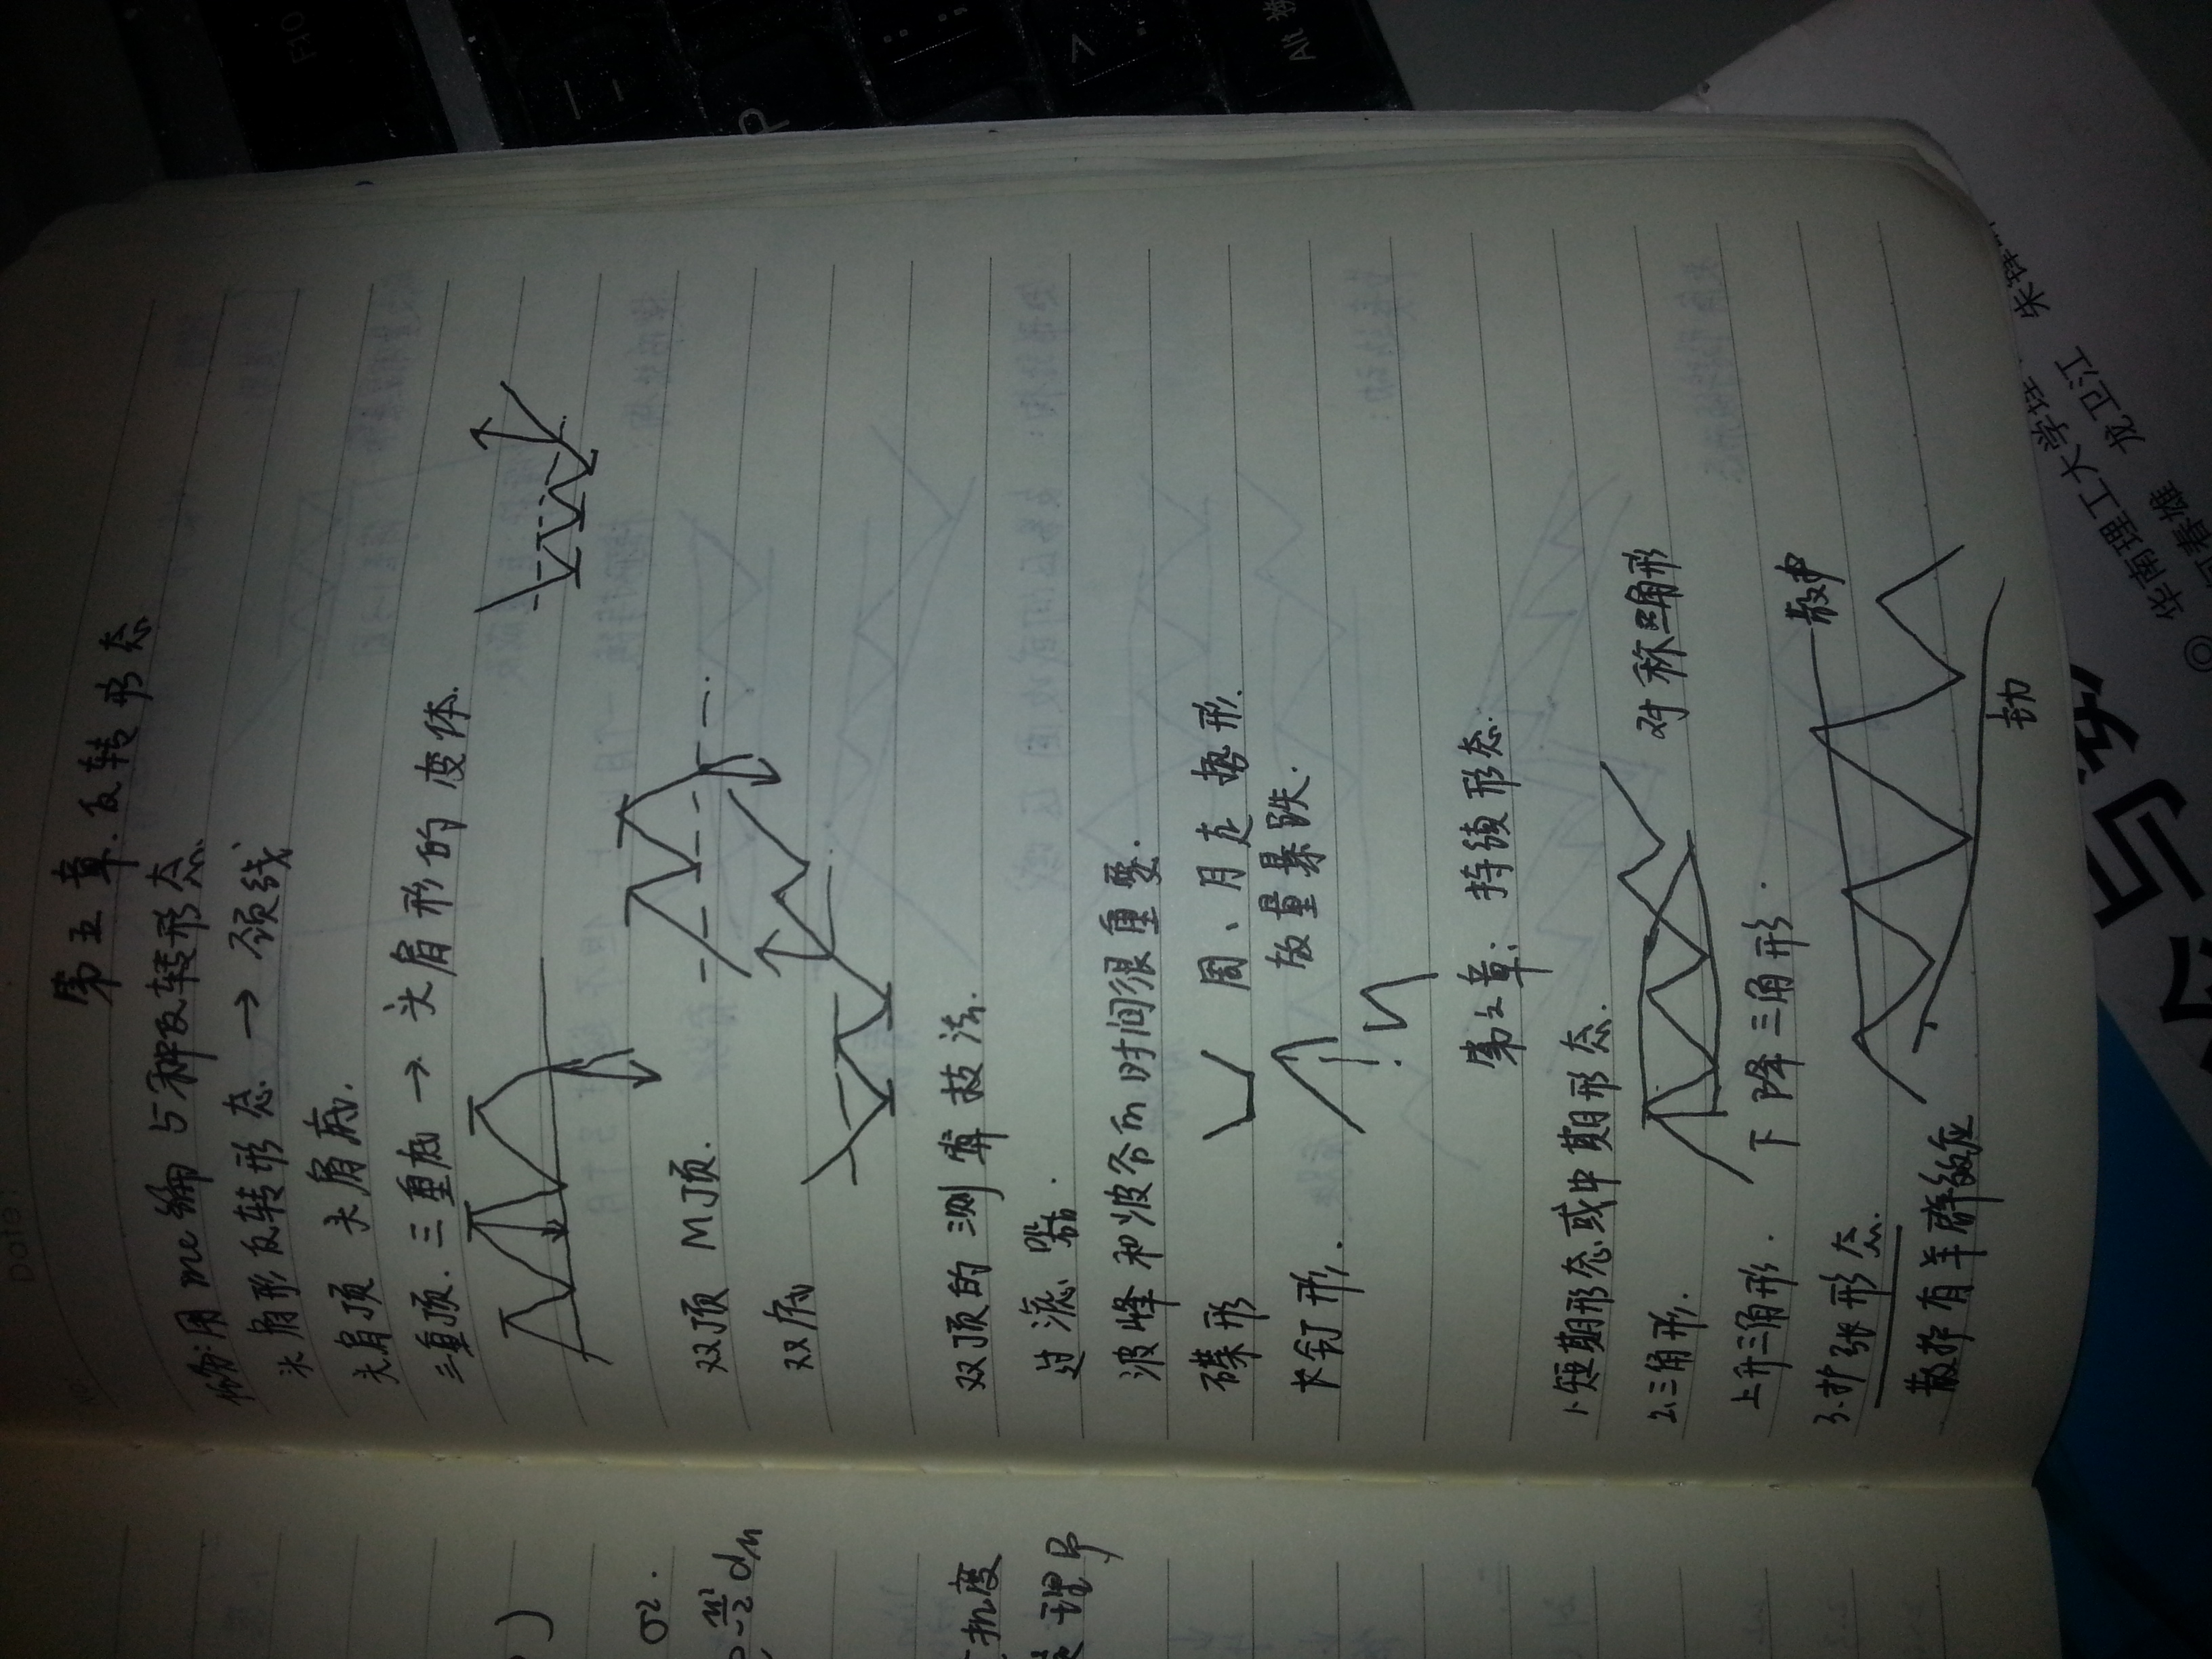 Date:
第五章.反转形态
任务:用mc编 5种反转形态.
头肩形反转形态 → 颈线
头肩顶 头肩底.
三重顶.三重底 → 头肩形的变体.
双顶 M顶.
双底
双顶的测算技法.
过滤器.
波峰和波谷的时间很重要.
碟形 周、月走势形.
放量暴跌.
长钉形.
章:持续形态.
1.短期形态或中期形态.
2.三角形. 对称三角形
上升三角形. 下降三角形.
3.扩张形态. 散户
散户有羊群效应
主力
)
σ².
机度
理
F10
P
Alt 换
论与数
◎ 华南理工大学理
何春雄 龙卫江 朱锋